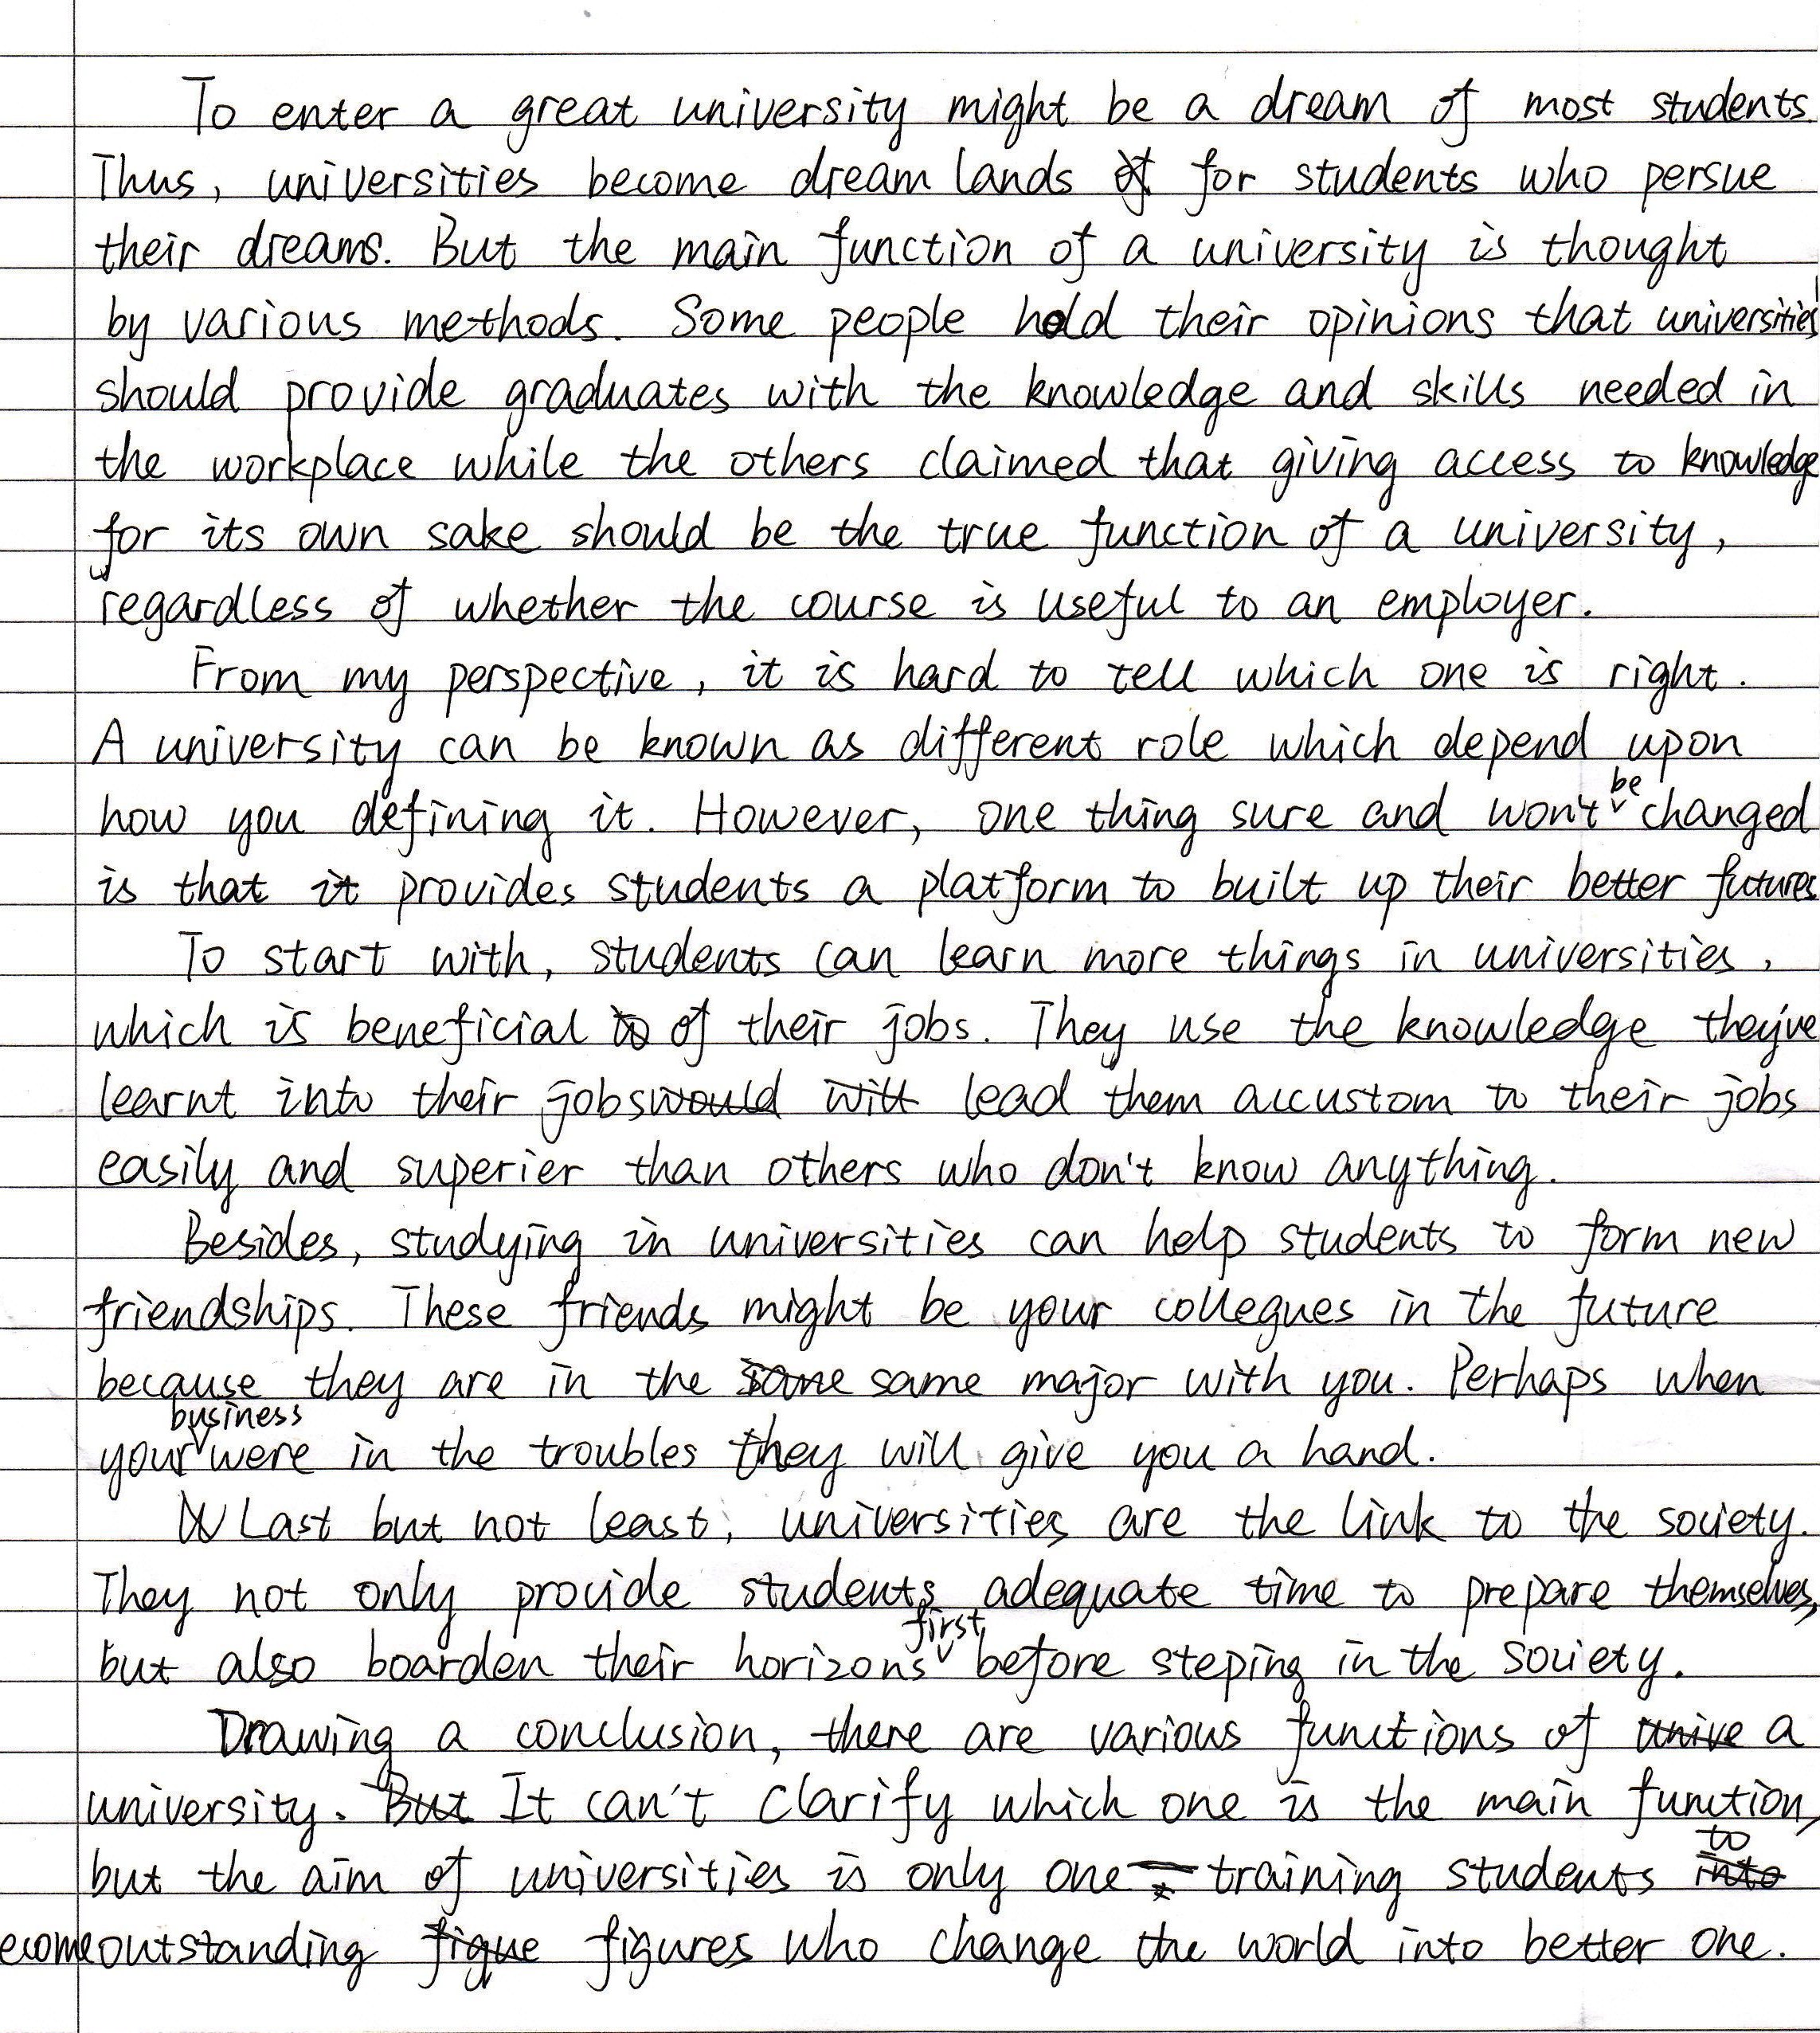 To enter a great university might be a dream of most students.
Thus, universities become dream lands for students who persue
their dreams. But the main function of a university is thought
by various methods. Some people hold their opinions that universities
should provide graduates with the knowledge and skills needed in
the workplace while the others claimed that giving access to knowledge
for its own sake should be the true function of a university,
regardless of whether the course is useful to an employer.
From my perspective, it is hard to tell which one is right.
A university can be known as different role which depend upon
how you defining it. However, one thing sure and won't be changed
is that it provides students a platform to built up their better futures
To start with, students can learn more things in universities,
which is beneficial of their jobs. They use the knowledge they've
learnt into their jobs lead them accustom to their jobs
easily and superier than others who don't know anything.
Besides, studying in universities can help students to form new
friendships. These friends might be your collegues in the future
because they are in the same major with you. Perhaps when
your business were in the troubles they will give you a hand.
Last but not least, universities are the link to the society.
They not only provide students adequate time to prepare themselves,
but also boarden their horizons first, before steping in the society.
Drawing a conclusion, there are various functions of a
university. It can't clarify which one is the main function,
but the aim of universities is only one training students to
ecome outstanding figures who change the world into better one.